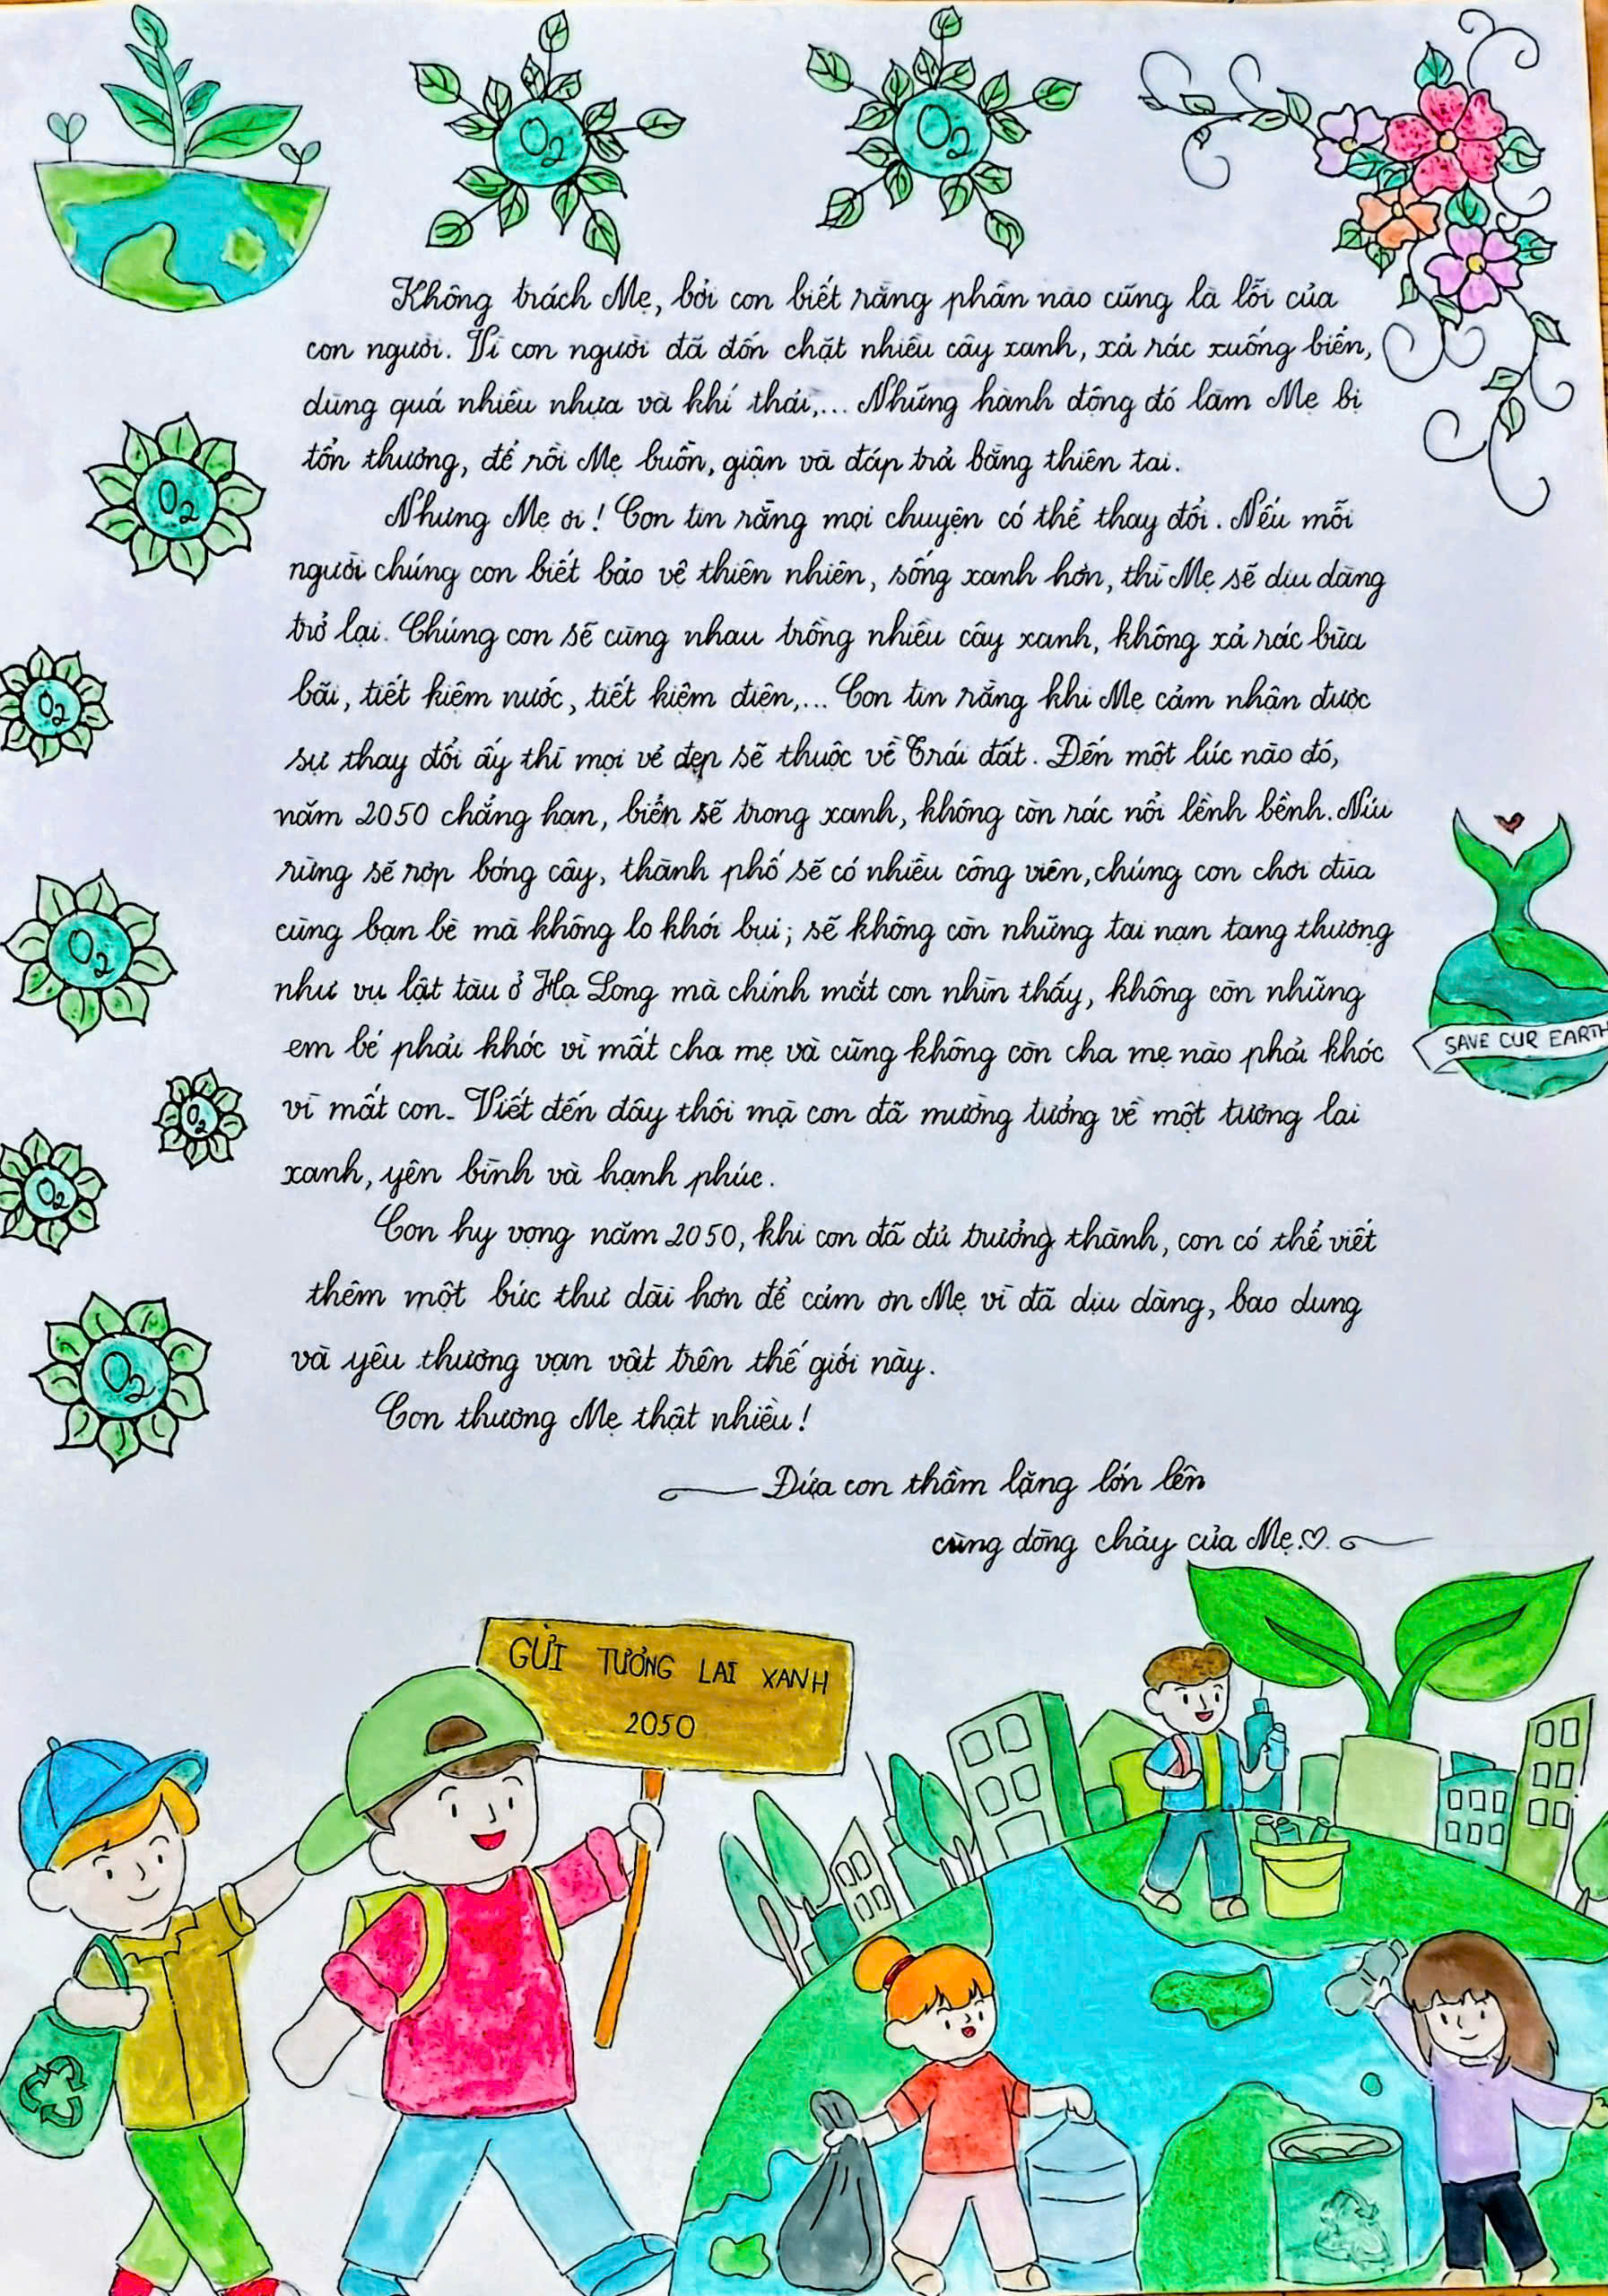 O₂
O₂
Không trách Mẹ, bởi con biết rằng phần nào cũng là lỗi của
con người. Vì con người đã đốn chặt nhiều cây xanh, xả rác xuống biển,
dùng quá nhiều nhựa và khí thải,... Những hành động đó làm Mẹ bị
tổn thương, để rồi Mẹ buồn, giận và đáp trả bằng thiên tai.
O₂
Nhưng Mẹ ơi! Con tin rằng mọi chuyện có thể thay đổi. Nếu mỗi
người chúng con biết bảo vệ thiên nhiên, sống xanh hơn, thì Mẹ sẽ dịu dàng
trở lại. Chúng con sẽ cùng nhau trồng nhiều cây xanh, không xả rác bừa
bãi, tiết kiệm nước, tiết kiệm điện,... Con tin rằng khi Mẹ cảm nhận được
O₂
sự thay đổi ấy thì mọi vẻ đẹp sẽ thuộc về Trái đất. Đến một lúc nào đó,
năm 2050 chẳng hạn, biển sẽ trong xanh, không còn rác nổi lềnh bềnh. Núi
rừng sẽ rợp bóng cây, thành phố sẽ có nhiều công viên, chúng con chơi đùa
cùng bạn bè mà không lo khói bụi; sẽ không còn những tai nạn tang thương
O₂
như vụ lật tàu ở Hạ Long mà chính mắt con nhìn thấy, không còn những
em bé phải khóc vì mất cha mẹ và cũng không còn cha mẹ nào phải khóc
SAVE OUR EARTH
vì mất con. Viết đến đây thôi mà con đã mường tưởng về một tương lai
O₂
xanh, yên bình và hạnh phúc.
O₂
Con hy vọng năm 2050, khi con đã đủ trưởng thành, con có thể viết
thêm một bức thư dài hơn để cảm ơn Mẹ vì đã dịu dàng, bao dung
và yêu thương vạn vật trên thế giới này.
O₂
Con thương Mẹ thật nhiều!
Đứa con thầm lặng lớn lên
cùng dòng chảy của Mẹ.♡.
GỬI TƯƠNG LAI XANH
2050